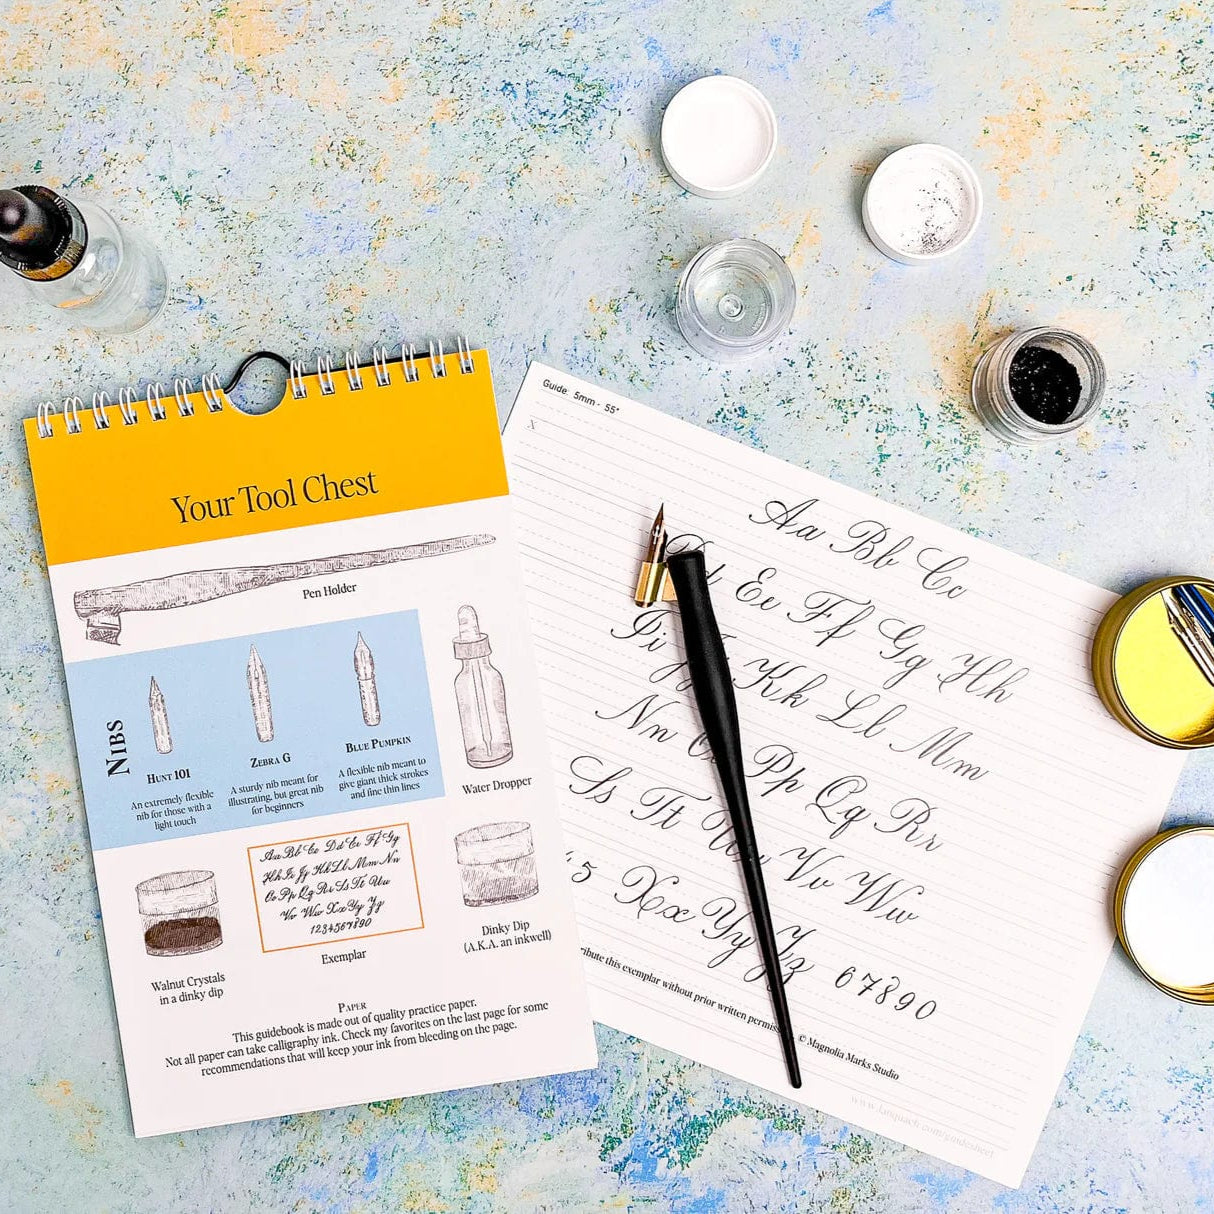 Your Tool Chest
Pen Holder
NIBS
HUNT 101
An extremely flexible
nib for those with a
light touch
ZEBRA G
A sturdy nib meant for
illustrating, but great nib
for beginners
BLUE PUMPKIN
A flexible nib meant to
give giant thick strokes
and fine thin lines
Water Dropper
Walnut Crystals
in a dinky dip
Aa Bb Cc Dd Ee Ff Gg
Hh Ii Jj Kk Ll Mm Nn
Oo Pp Qq Rr Ss Tt Uu
Vv Ww Xx Yy Zz
1234567890
Exemplar
Dinky Dip
(A.K.A. an inkwell)
PAPER
This guidebook is made out of quality practice paper.
Not all paper can take calligraphy ink. Check my favorites on the last page for some
recommendations that will keep your ink from bleeding on the page.
Guide: 5mm - 55°
X
Aa Bb Cc
Ee Ff Gg Hh
Ii Kk Ll Mm
Nn Pp Qq Rr
Ss Tt Vv Ww
5 Xx Yy Zz 67890
this exemplar without prior written
© Magnolia Marks Studio